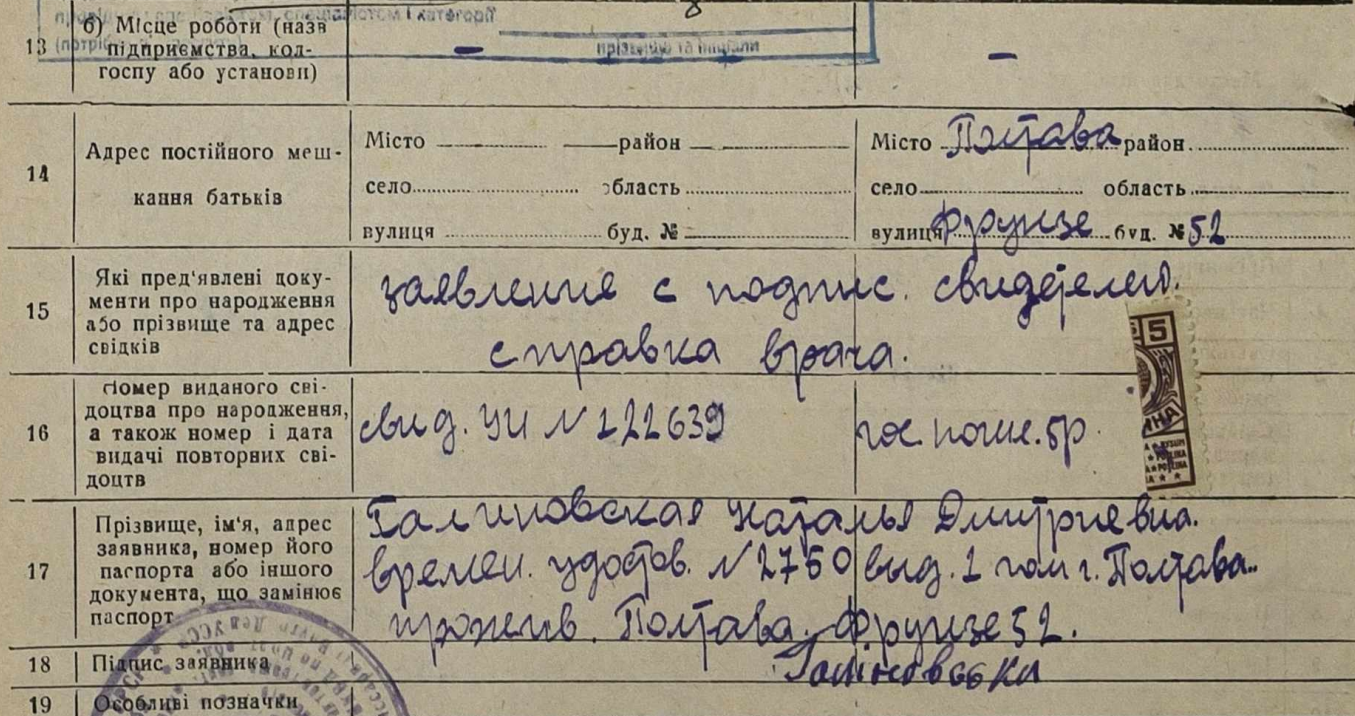 13
б) Місце роботи (назв
підприємства, кол-
госпу або установи)
—
—
14
Адрес постійного меш-
кання батьків
Місто район
село область
вулиця буд. №
Місто Полтава район
село область
вулиця Фрунзе буд. № 52
15
Які пред'явлені доку-
менти про народження
або прізвище та адрес
свідків
заявление с подпис. свидетелей.
справка врача.
16
Номер виданого сві-
доцтва про народження,
а також номер і дата
видачі повторних сві-
доцтв
свид. УИ N 122639
гос пошл. 5р
5
17
Прізвище, ім'я, адрес
заявника, номер його
паспорта або іншого
документа, що замінює
паспорт
Галиновская Наталья Дмитриевна.
времен. удостов. N 2750 выд. 1 гом г. Полтава.
прожив. Полтава. Фрунзе 52.
18
Підпис заявника
Галіновська
19
Особливі позначки